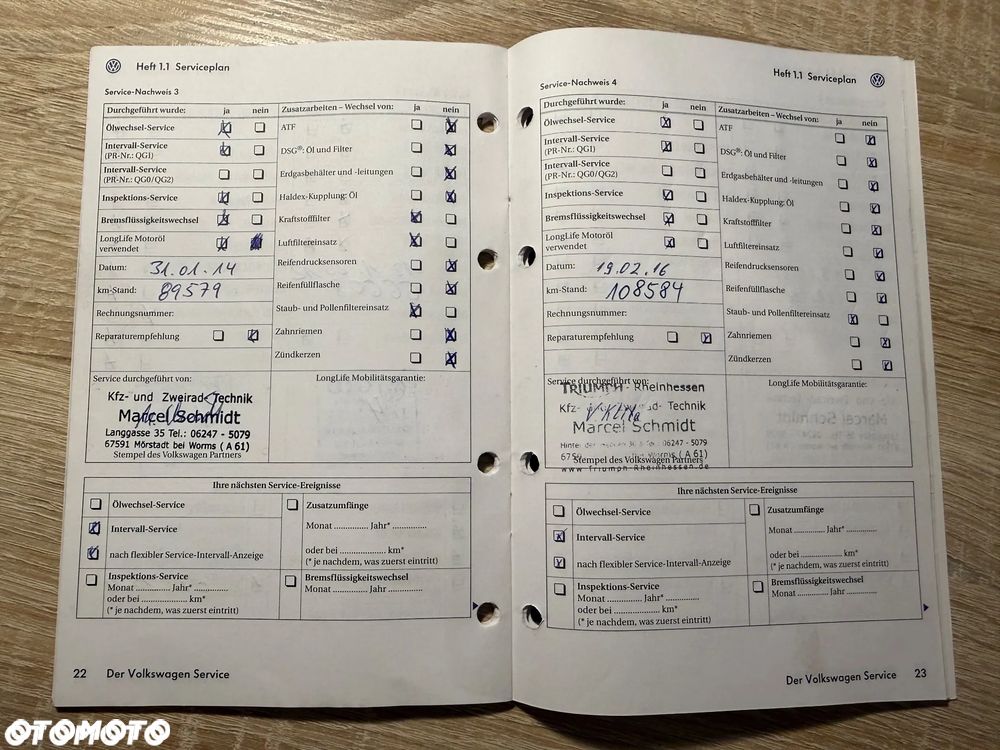 Heft 1.1 Serviceplan
Service-Nachweis 3
Durchgeführt wurde: ja nein
Ölwechsel-Service
Intervall-Service
(PR-Nr.: QG1)
Intervall-Service
(PR-Nr.: QG0/QG2)
Inspektions-Service
Bremsflüssigkeitswechsel
LongLife Motoröl
verwendet
Datum: 31.01.14
km-Stand: 89579
Rechnungsnummer:
Reparaturempfehlung
Zusatzarbeiten – Wechsel von: ja nein
ATF
DSG®: Öl und Filter
Erdgasbehälter und -leitungen
Haldex-Kupplung: Öl
Kraftstofffilter
Luftfiltereinsatz
Reifendrucksensoren
Reifenfüllflasche
Staub- und Pollenfiltereinsatz
Zahnriemen
Zündkerzen
Service durchgeführt von:
Kfz- und Zweirad-Technik
Marcel Schmidt
Langgasse 35 Tel.: 06247 - 5079
67591 Mörstadt bei Worms ( A 61)
Stempel des Volkswagen Partners
LongLife Mobilitätsgarantie:
Ihre nächsten Service-Ereignisse
Ölwechsel-Service
Intervall-Service
nach flexibler Service-Intervall-Anzeige
Inspektions-Service
Monat ............ Jahr* ............
oder bei ................ km*
(* je nachdem, was zuerst eintritt)
Zusatzumfänge
Monat ............ Jahr* ............
oder bei ................ km*
(* je nachdem, was zuerst eintritt)
Bremsflüssigkeitswechsel
Monat ............ Jahr ............
22 Der Volkswagen Service
Heft 1.1 Serviceplan
Service-Nachweis 4
Durchgeführt wurde: ja nein
Ölwechsel-Service
Intervall-Service
(PR-Nr.: QG1)
Intervall-Service
(PR-Nr.: QG0/QG2)
Inspektions-Service
Bremsflüssigkeitswechsel
LongLife Motoröl
verwendet
Datum: 19.02.16
km-Stand: 108584
Rechnungsnummer:
Reparaturempfehlung
Zusatzarbeiten – Wechsel von: ja nein
ATF
DSG®: Öl und Filter
Erdgasbehälter und -leitungen
Haldex-Kupplung: Öl
Kraftstofffilter
Luftfiltereinsatz
Reifendrucksensoren
Reifenfüllflasche
Staub- und Pollenfiltereinsatz
Zahnriemen
Zündkerzen
Service durchgeführt von:
TRIUMPH - Rheinhessen
Kfz- und Zweirad- Technik
Marcel Schmidt
Tel.: 06247 - 5079
bei Worms ( A 61)
Stempel des Volkswagen Partners
www.Triumph-Rheinhessen.de
LongLife Mobilitätsgarantie:
Ihre nächsten Service-Ereignisse
Ölwechsel-Service
Intervall-Service
nach flexibler Service-Intervall-Anzeige
Inspektions-Service
Monat ............ Jahr* ............
oder bei ................ km*
(* je nachdem, was zuerst eintritt)
Zusatzumfänge
Monat ............ Jahr* ............
oder bei ................ km*
(* je nachdem, was zuerst eintritt)
Bremsflüssigkeitswechsel
Monat ............ Jahr ............
Der Volkswagen Service 23
OTOMOTO